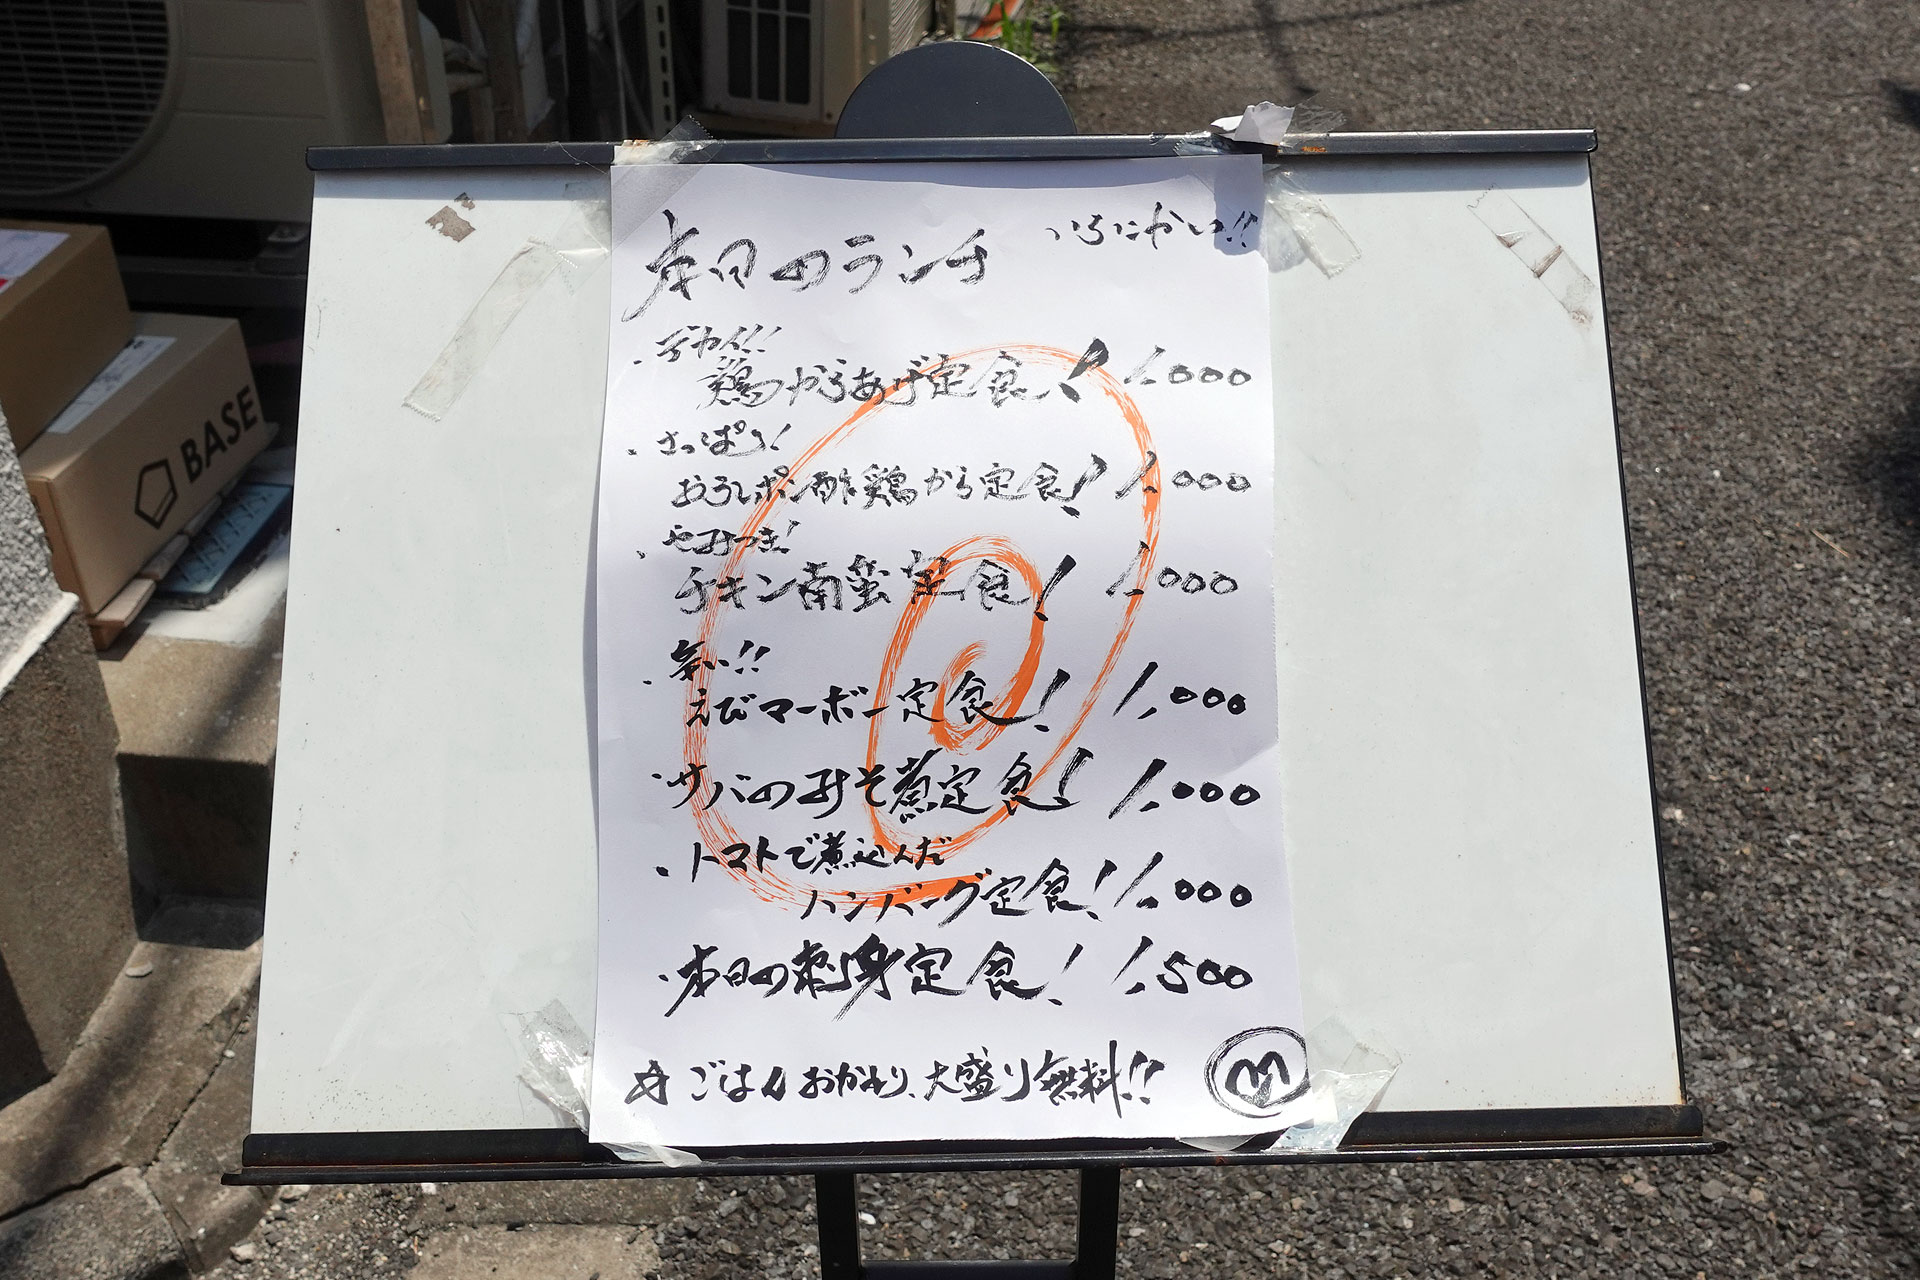 本日のランチ
いちにかい!!
・デカイ!!
鶏からあげ定食! 1,000
・さっぱり!
おろしポン酢鶏から定食! 1,000
・やみつき!
チキン南蛮定食! 1,000
・辛い!!
えびマーボー定食! 1,000
・サバのみそ煮定食! 1,000
・トマトで煮込んだ
ハンバーグ定食! 1,000
・本日の刺身定食! 1,500
ごはんおかわり、大盛り無料!!
BASE